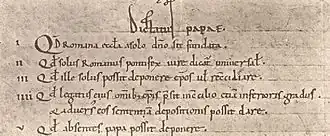 Dictatus papae.
I Qd Romana eccla a solo dno sit fundata.
II Qd solus Romanus pontifex iure dicat' universal'.
III Qd ille solus possit deponere epos ul' reconciliare.
IIII Qd legatus eius omib' epis presit in concilio etia inferioris gradus.
& adversus eos sententia depositionis possit dare.
V Qd absentes papa possit deponere.